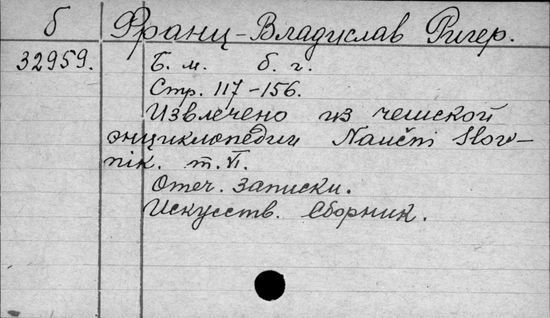 б Франц-Владислав Ригер.
32959. Б. м. б. г.
Стр. 117-156.
Извлечено из чешской
энциклопедии Naučni Slow-
nik. т. VI.
Отеч. Записки.
Искусств. Сборник.